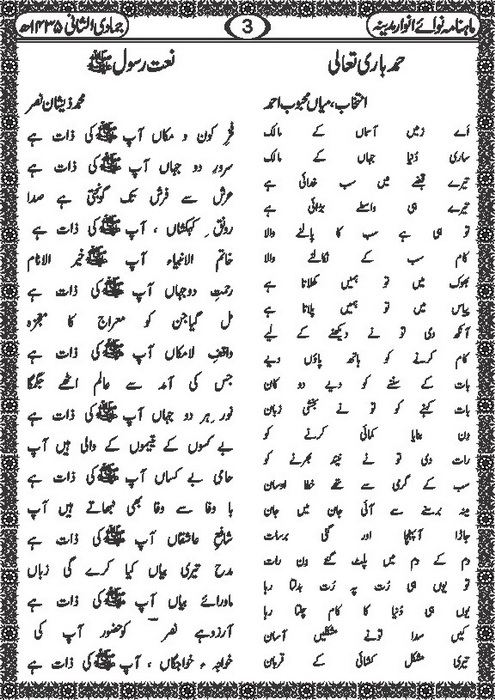 ماہنامہ نوائے انوار مدینہ
3
جمادی الثانی ۱۴۳۵ھ
حمد باری تعالی
انتخاب، میاں محبوب احمد
اے زمیں آسماں کے مالک
ساری دُنیا جہاں کے مالک
تیرے قبضے میں سب خدائی ہے
تیرے ہی واسطے بڑائی ہے
تو ہی ہے سب کا پالنے والا
کام سب کے نکالنے والا
بھوک میں تو ہمیں کھلاتا ہے
پیاس میں تو ہمیں پلاتا ہے
آنکھ دی تو نے دیکھنے کے لیے
کام کرنے کو ہاتھ پاؤں دیے
بات کے سننے کو دیے دو کان
بات کہنے کو تو نے بخشی زبان
دِن بنایا کمائی کرنے کو
رات دی تو نے نیند بھرنے کو
سب کے گرمی سے تھے خطا اوسان
مینہ برسنے سے آئی جان میں جان
جاڑا آپہنچا اور گئی برسات
دم کے دم میں پلٹ گئے دِن رات
تو یوں ہی رُت پہ رُت بدلتا رہا
یوں ہی دُنیا کا کام چلتا رہا
کیں سدا تونے مشکلیں آسان
تیری مشکل کشائی کے قربان
نعت رسول ﷺ
محمد ذیشان نصر
فخرِ کون و مکاں آپ ﷺ کی ذات ہے
سرورِ دو جہاں آپ ﷺ کی ذات ہے
عرش سے فرش تک گونجتی ہے صدا
رونقِ کہکشاں ، آپ ﷺ کی ذات ہے
خاتم الانبیاء آپ ﷺ خیر الانام
رحمتِ دوجہاں آپ ﷺ کی ذات ہے
مل گیا جن کو معراج کا معجزہ
واقفِ لامکاں آپ ﷺ کی ذات ہے
جس کی آمد سے عالم اٹھے جگمگا
نور ہر دو جہاں آپ ﷺ کی ذات ہے
بے کسوں کے یتیموں کے والی ہیں آپ
حامی بے کساں آپ ﷺ کی ذات ہے
با وفا سے وفا بھی نبھاتے ہیں آپ
شافعِ عاشقاں آپ ﷺ کی ذات ہے
مدح تیری بیاں کیا کرے گی زباں
ماورائے بیاں آپ ﷺ کی ذات ہے
آرزو ہے نصر کو حضور آپ کی
خواجہ ء خواجگاں، آپ ﷺ کی ذات ہے